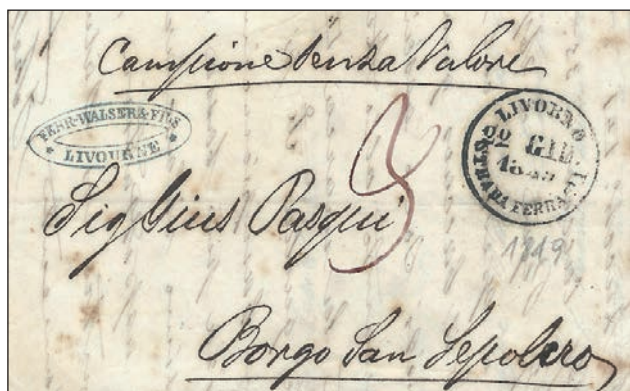 Campione senza Valore
FEHR-WALSER & FILS
LIVOURNE
LIVORNO
22 GIU.
STRADA FERRATA
3
Sig Gius Pasqui
1849
Borgo San Sepolcro